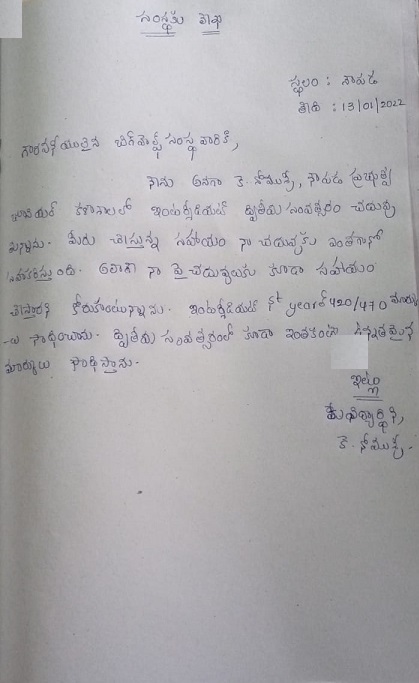 సంస్థకు లేఖ
స్థలం : నారుడ
తేది : 13/01/2022
గౌరవనీయులైన సంస్థ వారికి,
నేను అనగా కె. సోముశ్రీ, నారుడ ప్రభుత్వ
జూనియర్ కళాశాలలో ఇంటర్మీడియట్ ద్వితీయ సంవత్సరం చదువు
తున్నాను. మీరు చేస్తున్న సహాయం నా చదువుకు ఎంతగానో
సహకరిస్తుంది. అలాగే నా పై చదువులకు కూడా సహాయం
చేస్తారని కోరుకుంటున్నాను. ఇంటర్మీడియట్ 1st yearలో 420/470 మార్కు
-లు సాధించాను. ద్వితీయ సంవత్సరంలో కూడా ఇంతకంటే ఉన్నతమైన
మార్కులు సాధిస్తాను.
ఇట్లు
మీ విద్యార్థిని,
కె. సోముశ్రీ.